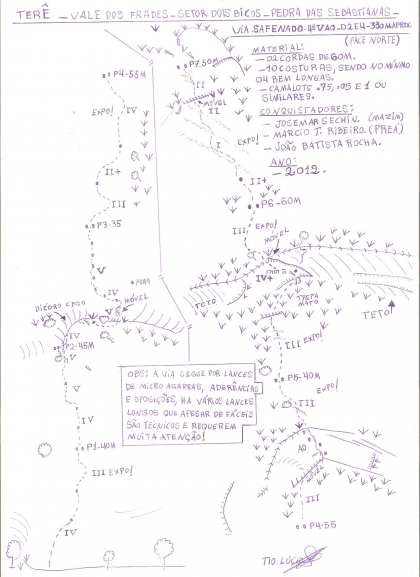 TERÊ - VALE DOS FRADES - SETOR DOIS BICOS - PEDRA DAS SEBASTIANAS -
VIA SAFENADO - 4º VAO - D2 E4 - 330 METROS
(FACE NORTE)
MATERIAL:
- 02 CORDAS DE 60M.
- 10 COSTURAS, SENDO NO MÍNIMO
04 BEM LONGAS.
- CAMALOTS .75, .05 E 1 OU
SIMILARES.
CONQUISTADORES:
- JOSEMAR SECHIN. (MAZIM)
- MARCIO T. RIBEIRO. (PREA)
- JOÃO BATISTA ROCHA.
ANO:
- 2012.
P7.50M
II
MÓVEL
II
I
EXPO!
II+
P6-60M
III
EXPO!
MÓVEL
IV+
TETO
TREPA
MATO
TETO
III EXPO!
P5-40M
EXPO!
III
A0
MÓVEL
III
P4-55
P4-55M
EXPO!
IV
II+
III
P3-35
V
DIEDRO CEGO
MÓVEL
V
V
IV
P2-45M
V
IV
P1.40M
III EXPO!
IV
OBS: A VIA SEGUE POR LANCES
DE MICRO AGARRAS, ADERÊNCIAS
E OPOSIÇÕES, HA VÁRIOS LANCES
LONGOS QUE APESAR DE FÁCEIS
SÃO TÉCNICOS E REQUEREM
MUITA ATENÇÃO!
TIO LÚCIO